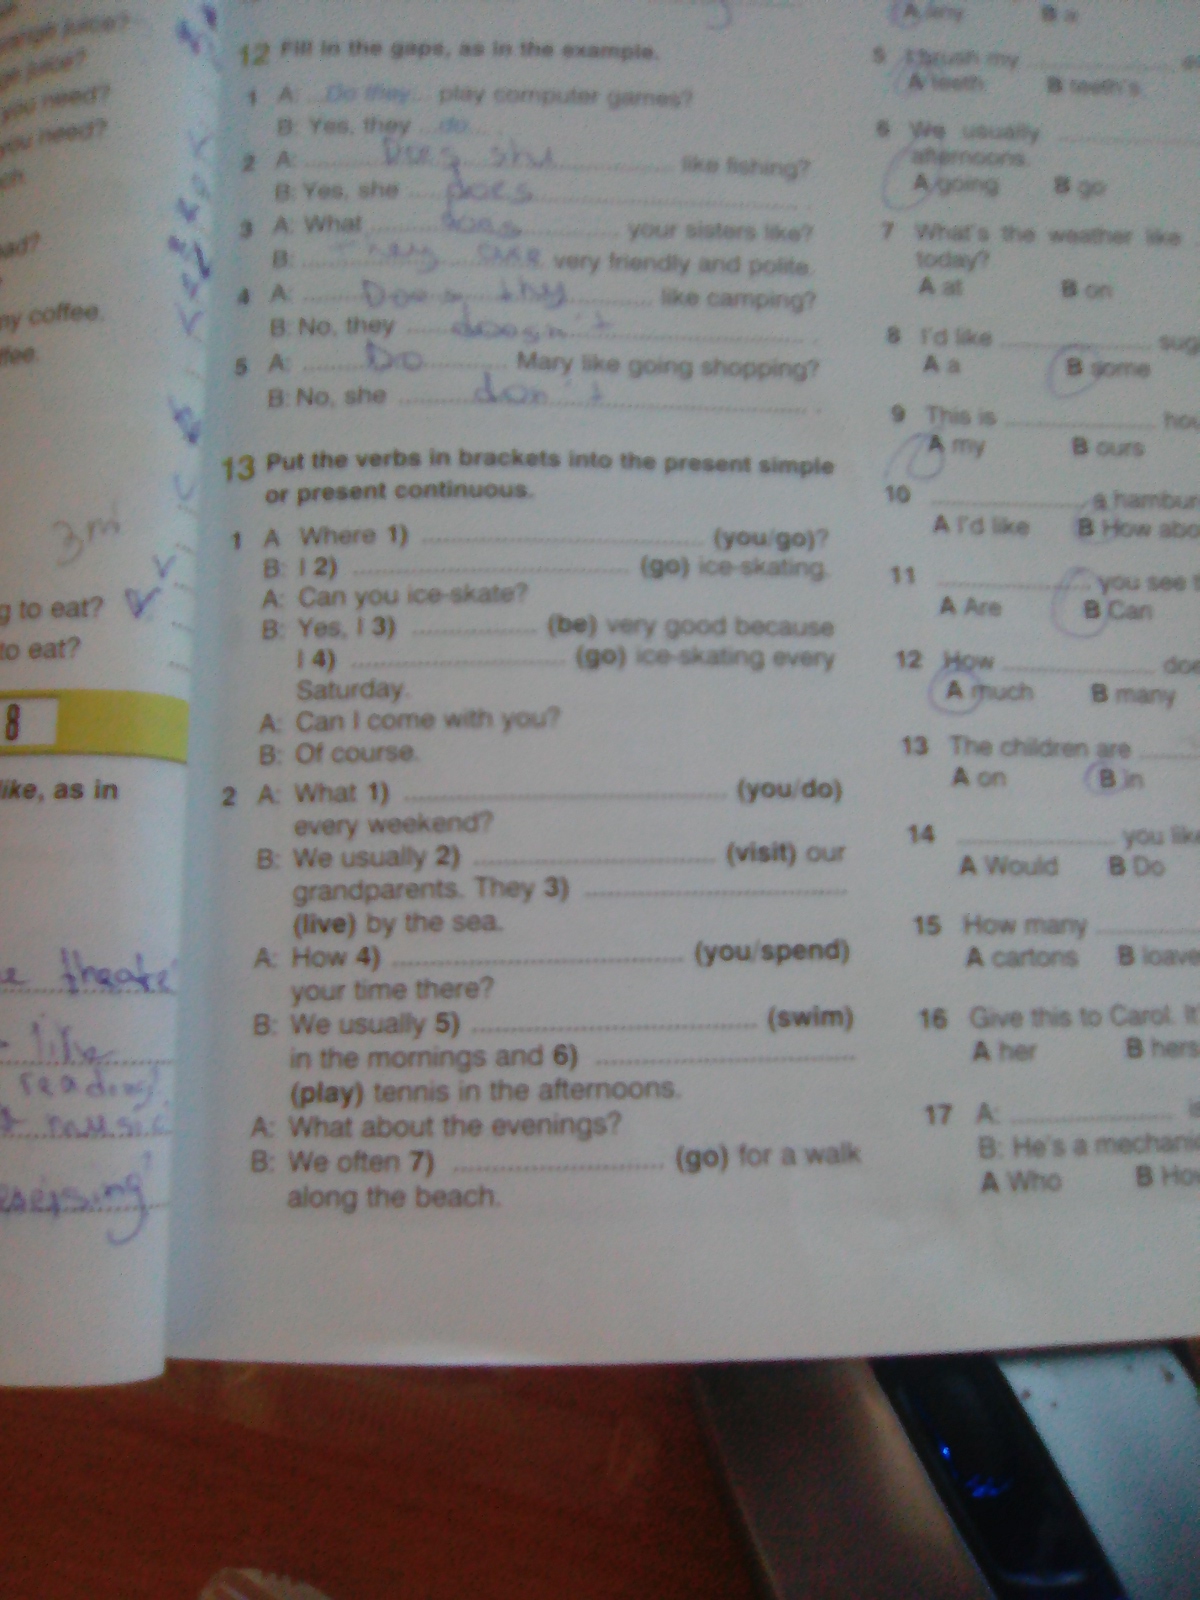 orange juice?
juice?
you need?
you need?
my coffee.
3 m
g to eat?
to eat?
8
like, as in
theate
life
reading
music
12 Fill in the gaps, as in the example.
1 A: Do they play computer games?
B: Yes, they do
2 A: Does she like fishing?
B: Yes, she does
3 A: What does your sisters like?
B: They are very friendly and polite.
4 A: Does they like camping?
B: No, they doesn't
5 A: Do Mary like going shopping?
B: No, she don't
13 Put the verbs in brackets into the present simple
or present continuous.
1 A Where 1) (you/go)?
B: I 2) (go) ice-skating.
A: Can you ice-skate?
B: Yes, I 3) (be) very good because
I 4) (go) ice-skating every
Saturday.
A: Can I come with you?
B: Of course.
2 A: What 1) (you/do)
every weekend?
B: We usually 2) (visit) our
grandparents. They 3)
(live) by the sea.
A: How 4) (you/spend)
your time there?
B: We usually 5) (swim)
in the mornings and 6)
(play) tennis in the afternoons.
A: What about the evenings?
B: We often 7) (go) for a walk
along the beach.
A any B a
5 I brush my
A teeth B teeth's
6 We usually
afternoons.
A going B go
7 What's the weather like
today?
A at B on
8 I'd like sug
A a B some
9 This is hou
A my B ours
10 a hambur
A I'd like B How abo
11 you see t
A Are B Can
12 How doe
A much B many
13 The children are
A on B in
14 you like
A Would B Do
15 How many
A cartons B loave
16 Give this to Carol. It
A her B hers
17 A:
B: He's a mechani
A Who B How